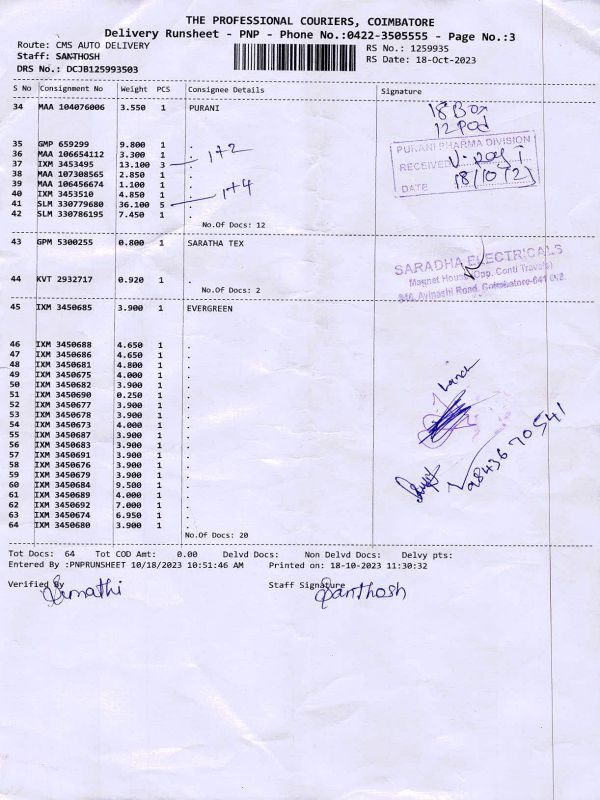 THE PROFESSIONAL COURIERS, COIMBATORE
Delivery Runsheet - PNP - Phone No.:0422-3505555 - Page No.:3
Route: CMS AUTO DELIVERY
RS No.: 1259935
Staff: SANTHOSH
RS Date: 18-Oct-2023
DRS No.: DCJB125993503
S No Consignment No Weight PCS Consignee Details Signature
34 MAA 104076006 3.550 1 PURANI
18 Box
12 Pod
35 GMP 659299 9.800 1 .
36 MAA 106654112 3.300 1 .
37 IXM 3453495 13.100 3 . 1+2
38 MAA 107308565 2.850 1 .
39 MAA 106456674 1.100 1 .
40 IXM 3453510 4.850 1 .
41 SLM 330779680 36.100 5 . 1+4
42 SLM 330786195 7.450 1 .
PURANI PHARMA DIVISION
RECEIVED
DATE
No.Of Docs: 12
43 GPM 5300255 0.800 1 SARATHA TEX
44 KVT 2932717 0.920 1 .
No.Of Docs: 2
SARADHA ELECTRICALS
Magnet House, Opp. Conti Travels)
Avinashi Road, Coimbatore-641
45 IXM 3450685 3.900 1 EVERGREEN
46 IXM 3450688 4.650 1 .
47 IXM 3450686 4.650 1 .
48 IXM 3450681 4.800 1 .
49 IXM 3450675 4.000 1 .
50 IXM 3450682 3.900 1 .
51 IXM 3450690 0.250 1 .
52 IXM 3450677 3.900 1 .
53 IXM 3450678 3.900 1 .
54 IXM 3450673 4.000 1 .
55 IXM 3450687 3.900 1 .
56 IXM 3450683 3.900 1 .
57 IXM 3450691 3.900 1 .
58 IXM 3450676 3.900 1 .
59 IXM 3450679 3.900 1 .
60 IXM 3450684 9.500 1 .
61 IXM 3450689 4.000 1 .
62 IXM 3450692 7.000 1 .
63 IXM 3450674 6.950 1 .
64 IXM 3450680 3.900 1 .
9843670541
No.Of Docs: 20
Tot Docs: 64 Tot COD Amt: 0.00 Delvd Docs: Non Delvd Docs: Delvy pts:
Entered By :PNPRUNSHEET 10/18/2023 10:51:46 AM Printed on: 18-10-2023 11:30:32
Verified By
Staff Signature
Santhosh